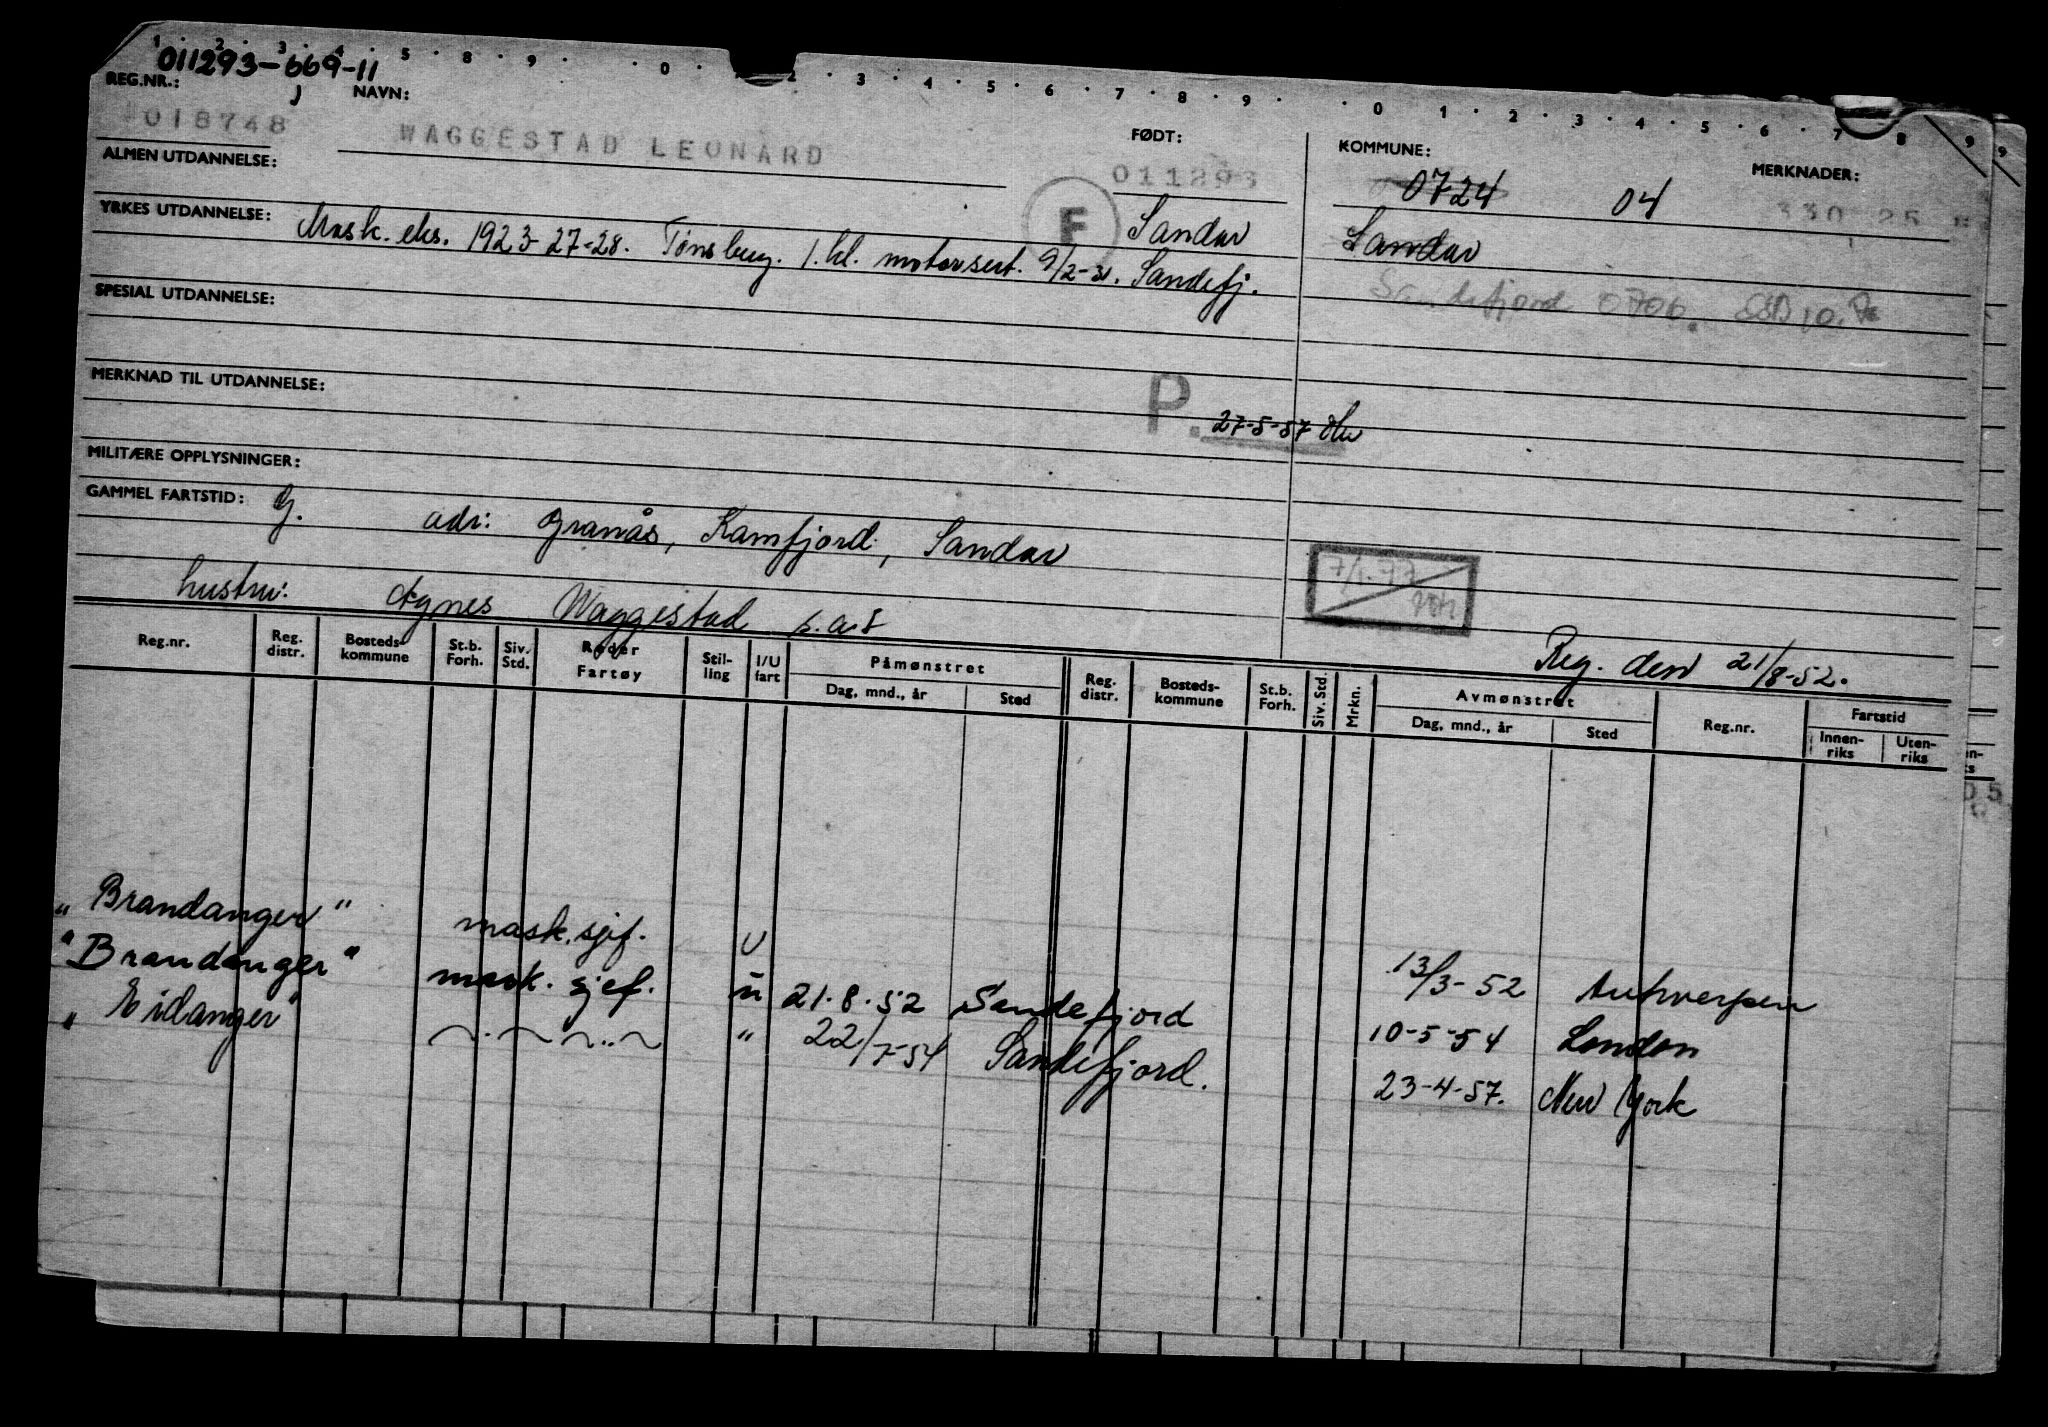 1 · 2 · 3 · 4 · 5 · 8 · 9 · · 0 · 2 · 3 · 4 · 5 · 6 · 7 · 8 · 9 · · 0 · 1 · 2 · 3 · 4 · 5 · 6 · 7 · 8 9 9
011293-669-11
REG.NR.: NAVN:
018748 WAGGESTAD LEONARD
FØDT: 011293
KOMMUNE: 0724 04
MERKNADER: 330 25
ALMEN UTDANNELSE:
F Sandar Sandar
YRKES UTDANNELSE: Mask. eks. 1923-27-28. Tønsberg. 1. kl. motorsert. 9/2-31. Sandefj.
Sandefjord 0706.
SPESIAL UTDANNELSE:
MERKNAD TIL UTDANNELSE:
P. 27-5-57
MILITÆRE OPPLYSNINGER:
GAMMEL FARTSTID: G. adr: Granås, Kamfjord, Sandar
7/1.77
hustru: Agnes Waggestad s.a.s
Reg. den 21/8-52.
Reg.nr. Reg. distr. Bosteds- kommune St.b. Forh. Siv. Std. Reder Fartøy Stil- ling I/U fart Påmønstret Dag, mnd., år Sted Reg. distr. Bosteds- kommune St.b. Forh. Siv. Std. Mrkn. Avmønstret Dag, mnd., år Sted Reg.nr. Fartstid Innen- riks Uten- riks
"Brandanger" mask.sjef. U 13/3-52 Antwerpen
"Brandanger" mask. sjef. u 21.8.52 Sandefjord 10-5-54 London
"Eidanger" " 22/7-54 Sandefjord. 23-4-57. New York